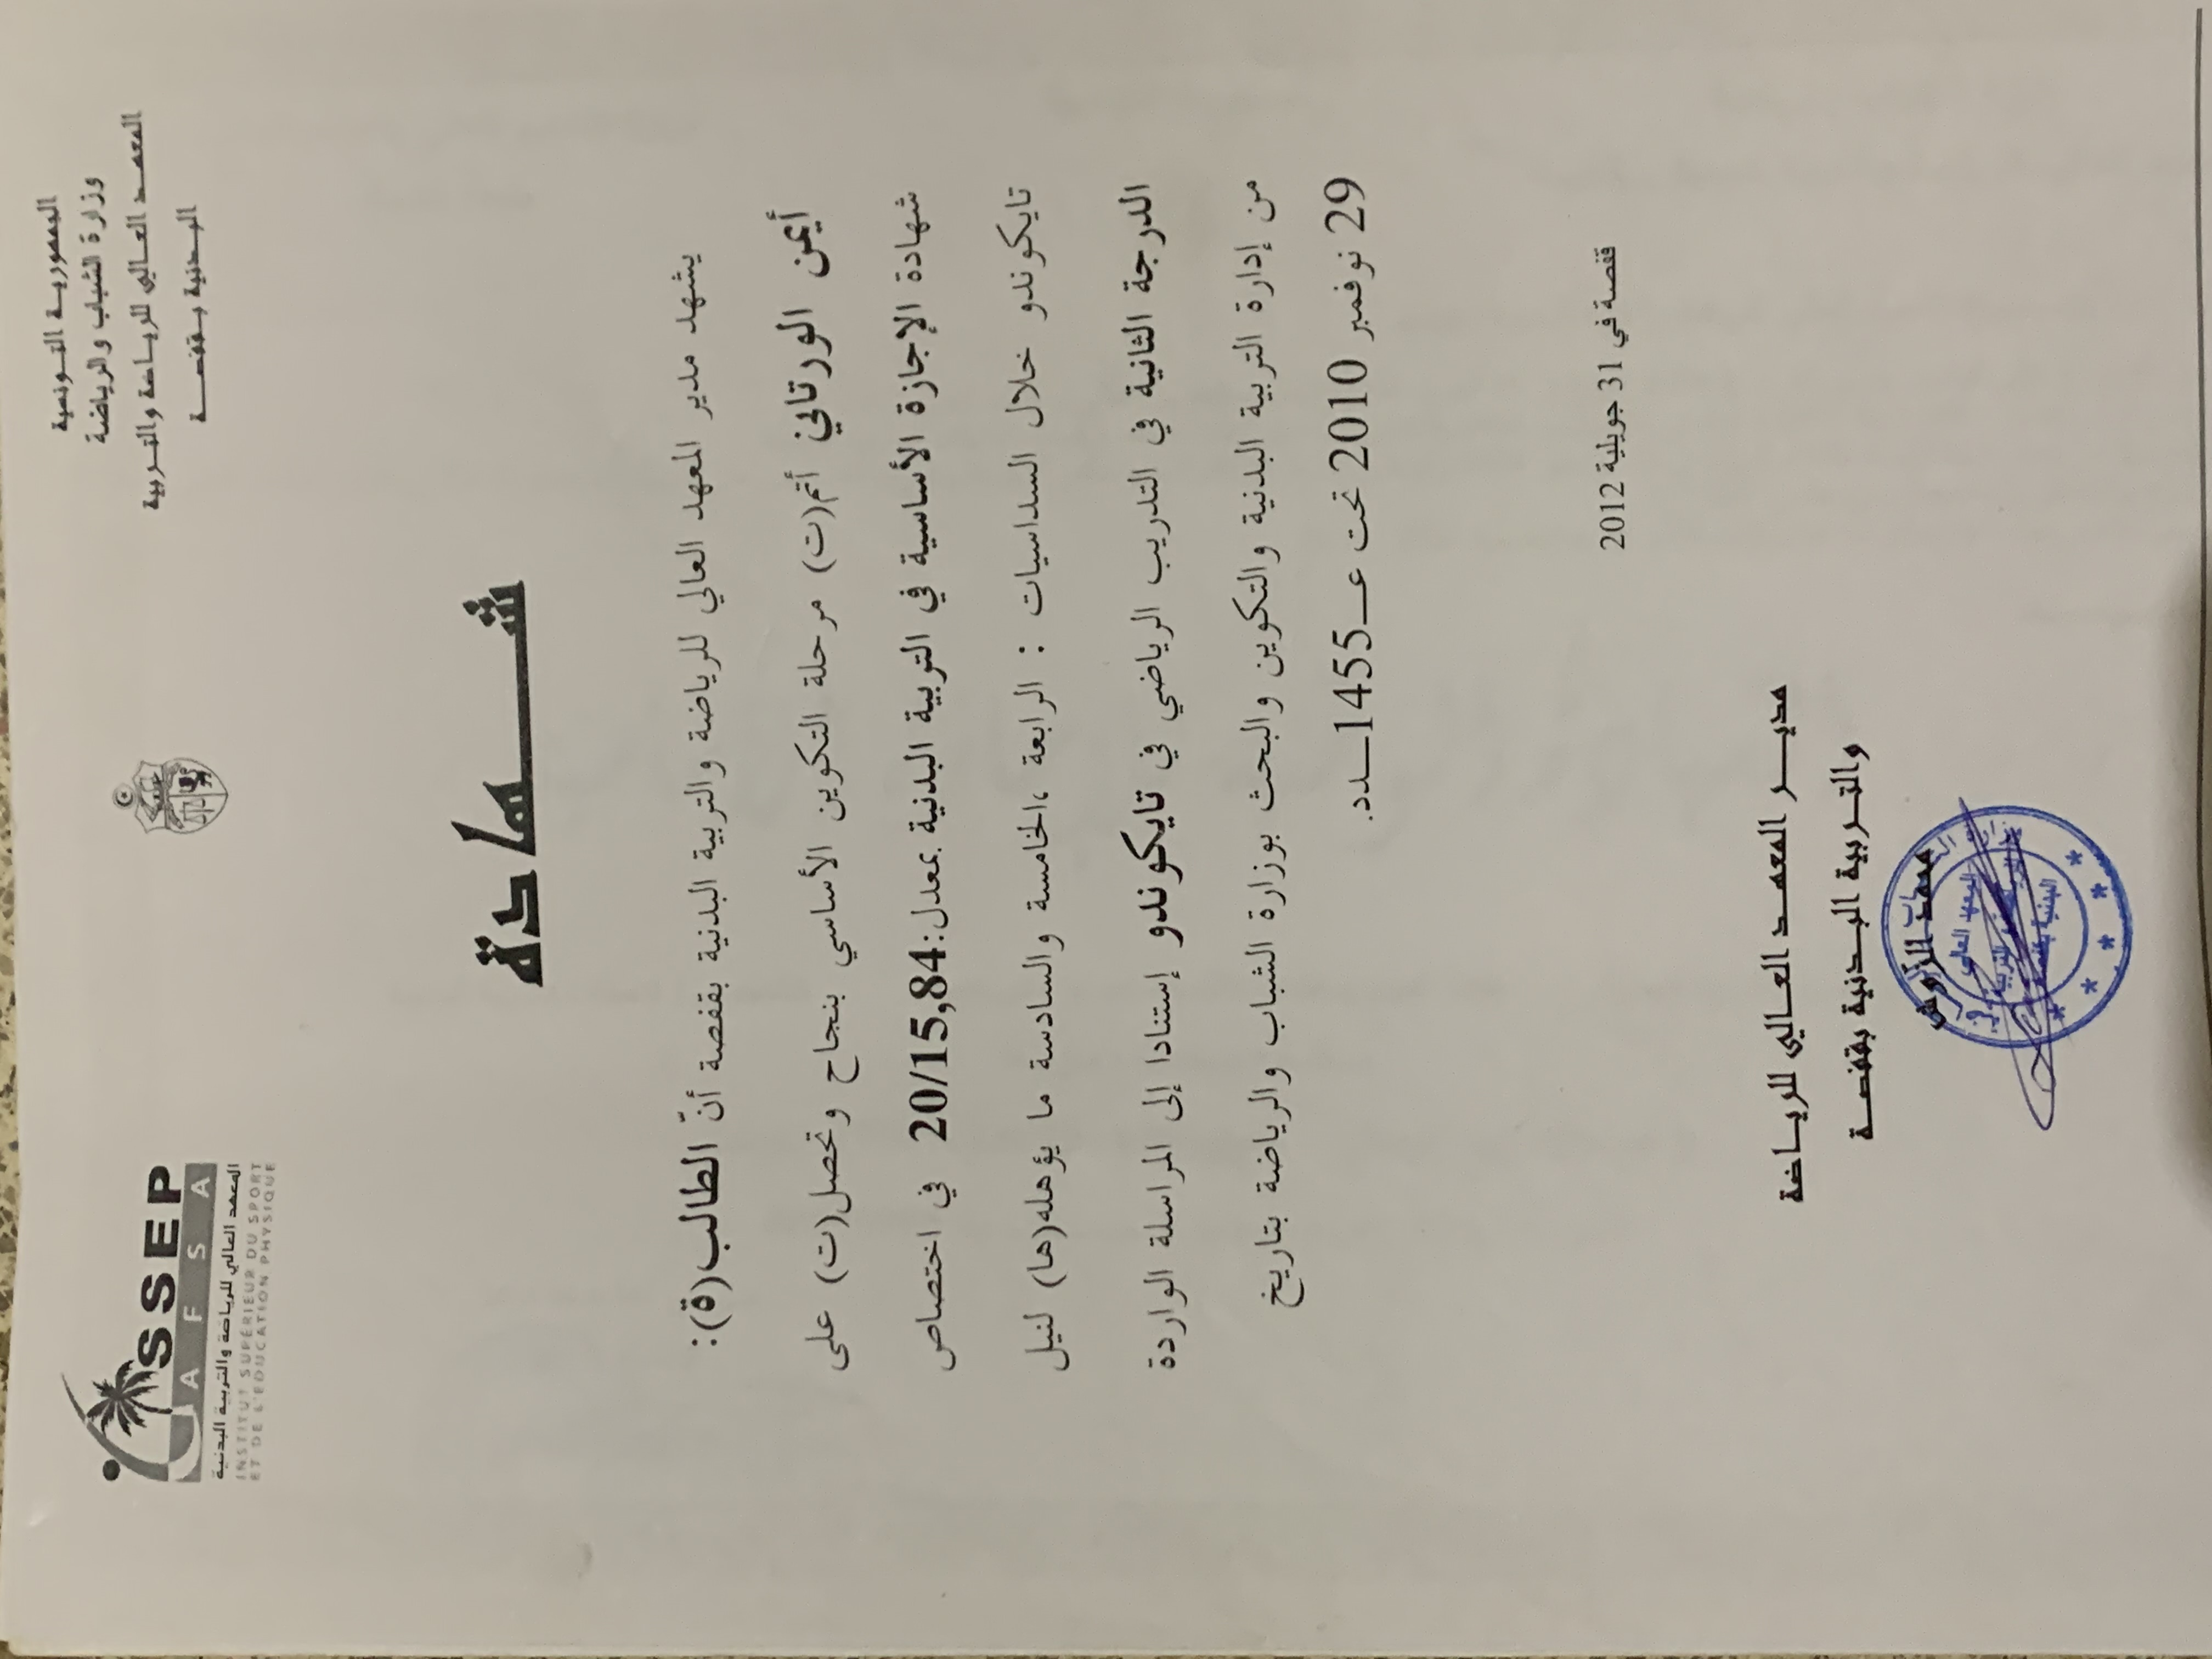 الجمهورية التونسية
وزارة الشباب والرياضة
المعهد العالي للرياضة والتربية
البدنية بقفصة
ISSEP
GAFSA
المعهد العالي للرياضة والتربية البدنية
INSTITUT SUPÉRIEUR DU SPORT
ET DE L'EDUCATION PHYSIQUE
شهادة
يشهد مدير المعهد العالي للرياضة والتربية البدنية بقفصة أنّ الطالب(ة):
أيمن الورتاني أتم(ت) مرحلة التكوين الأساسي بنجاح وتحصل(ت) على
شهادة الإجازة الأساسية في التربية البدنية بمعدل:20/15,84 في اختصاص
تايكوندو خلال السداسيات : الرابعة ،الخامسة والسادسة ما يؤهله(ها) لنيل
الدرجة الثانية في التدريب الرياضي في تايكوندو إستنادا إلى المراسلة الواردة
من إدارة التربية البدنية والتكوين والبحث بوزارة الشباب والرياضة بتاريخ
29 نوفمبر 2010 تحت عـ1455ـدد.
قفصة في 31 جويلية 2012
مديـر المعهد العالي للرياضة
والتربية البدنية بقفصة
المعهد العالي
البدنية بقفصة